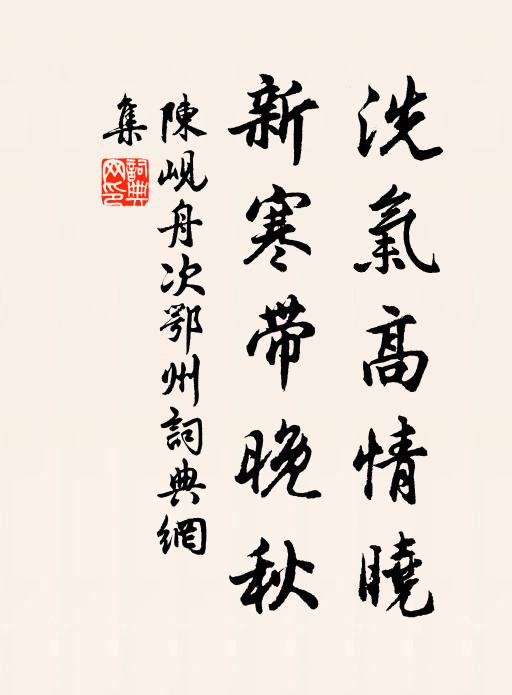 洗氣高情曉
新寒帶晚秋
陳峴舟次鄂州詞典網
集
詞典
網印